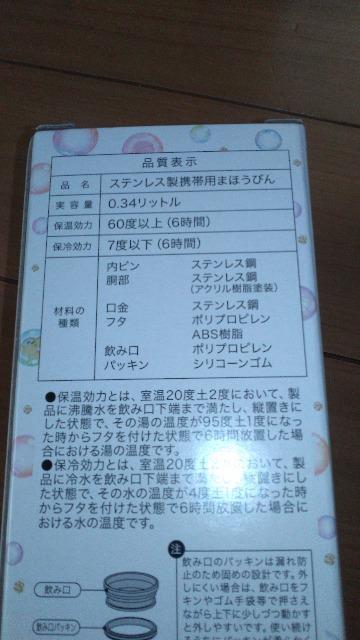 品質表示
品 名 ステンレス製携帯用まほうびん
実 容 量 0.34リットル
保温効力 60度以上 (6時間)
保冷効力 7度以下 (6時間)
材料の種類
内ビン ステンレス鋼
胴部 ステンレス鋼
(アクリル樹脂塗装)
口金 ステンレス鋼
フタ ポリプロピレン
ABS樹脂
飲み口 ポリプロピレン
パッキン シリコーンゴム
●保温効力とは、室温20度±2度において、製
品に沸騰水を飲み口下端まで満たし、縦置きに
した状態で、その湯の温度が95度±1度になっ
た時からフタを付けた状態で6時間放置した場
合における湯の温度です。
●保冷効力とは、室温20度±2度において、製
品に冷水を飲み口下端まで満たし、縦置きにし
た状態で、その水の温度が4度±1度になった時
からフタを付けた状態で6時間放置した場合に
おける水の温度です。
注
飲み口のパッキンは漏れ防
止のため固めの設計です。外
しにくい場合は、飲み口をフ
キンやゴム手袋等で押さえ
ながら上下に少しづつ動かす
と外しやすいです。使い続け
飲み口
飲み口パッキン